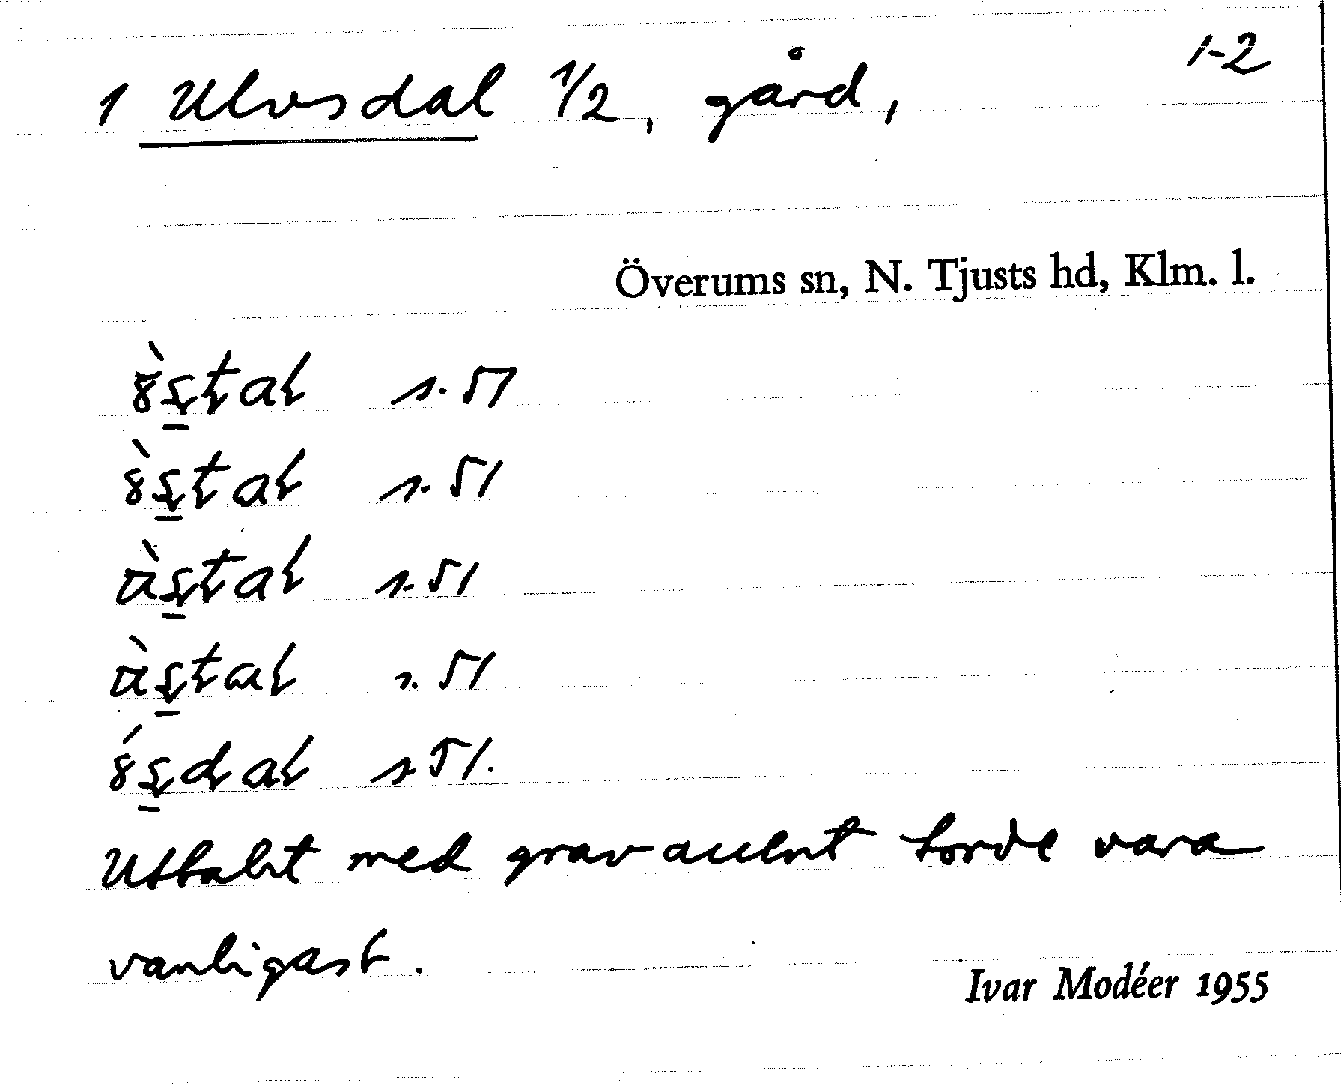 1-2
1 Ulvsdal 1/2, gård,
Överums sn, N. Tjusts hd, Klm. l.
s. 51
s. 51
s. 51
s. 51
s 51.
Uttalet med grav accent torde vara
vanligast.
Ivar Modéer 1955